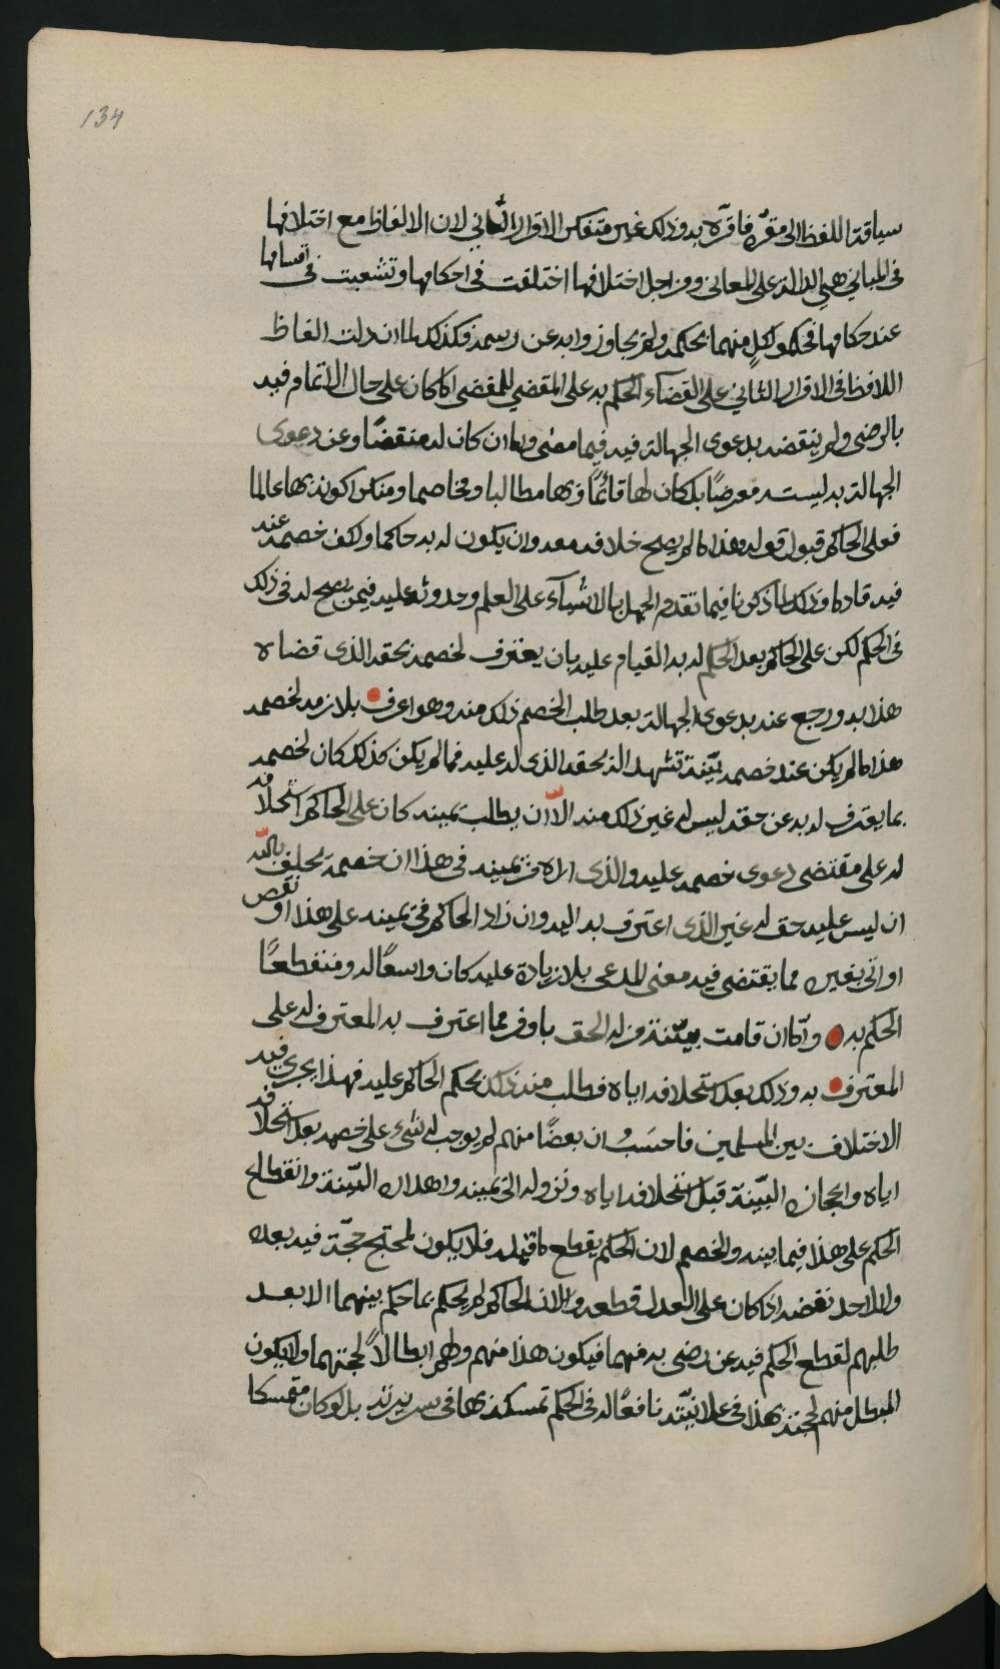 134
سياقة اللفظ الى مقرّه فاقرّه به وذلك غير متفكس الاقرار الثاني لان الالفاظ مع اختلافها
في المباني هي الدالة على المعاني ومن اجل اختلافها اختلفت في احكامها وتشعبت في اقسامها
عند حكامها فحكموا لكل منهما بحكمه ولم يجاوزوا به عن رسمه فكذلك لما ان دلت الفاظ
اللافظ في الاقرار الثاني على القضاء الحكم به على المقضي للمقضى اذا كان على حال الاتمام فيه
بالرضى ولم ينقضه بدعوى الجهالة فيه فيما مضى واما ان كان له منقضًا وعن دعوى
الجهالة به ليست معرضًا بل كان لها قائمًا وبها مطالبا ومخاصما ومنكر اكونه بها عالما
فعلى الحاكم قبول قوله هذا ما لم يصح خلافه معه وان يكون له به حاكما ولكف خصمه عنه
فيه قادما وذلك لما ذكرنا فيما تقدم الجهل بالاشياء على العلم وحدوثه عليه فيمن يصح له في ذلك
في الحكم لكن على الحاكم بعد الحكم له به القيام عليه بان يعترف لخصمه بحقه الذى قضاه
هذا به ورجع عنه بدعوى الجهالة بعد طلب الخصم ذلك منه وهو اعرف بلازمه لخصمه
هذا ما لم يكن عند خصمه بيّنة تشهد له بحقه الذى له عليه فما لم يكن كذلك كان لخصمه
بما يعترف له به عن حقه ليس له غير ذلك منه الّا ان يطلب يمينه كان على الحاكم استحلافه
له على مقتضى دعوى خصمه عليه والذى اراه في يمينه في هذا ان خصمه يحلف بالله
ان ليس عليه حق له غير الذى اعترف به اليه وان زاد الحاكم في يمينه على هذا او نقص
او اتى بغيره مما يقتضى فيه معنى المدعى بلا زيادة عليه كان واسعًا له ومنقطعًا
الحكم به وامّا ان قامت بيّنة من له الحق باوفر مما اعترف به المعترف له على
المعترف به وذلك بعد استحلافه اياه فطلب منه ذلك بحكم الحاكم عليه فهذا يجرى فيه
الاختلاف بين المسلمين فاحسَبُ ان بعضًا منهم لم يوجب له شيء على خصمه بعد استحلافه
اياه واعجازه البيّنة قبل استحلافه اياه ونزوله الى يمينه واهداره البيّنة وانقطاع
الحكم على هذا فيما بينه والخصم لان الحكم يقطع ما قبله فلا يكون لمحتج حجّة فيه بعده
ولا لاحد نقضه اذا كان على العدل قطعه ولان الحاكم لم يحكم بما حكم بينهما الا بعد
طلبهم لقطع الحكم فيه عن رضى به منهما فيكون هذا منهم ولهم ابطالًا لحجتهما ولا يكون
المبطل منهم لحجته بهذا في علانيّته نافعًا له في الحكم تمسكه بها في سريرته بل لو كان متمسكا